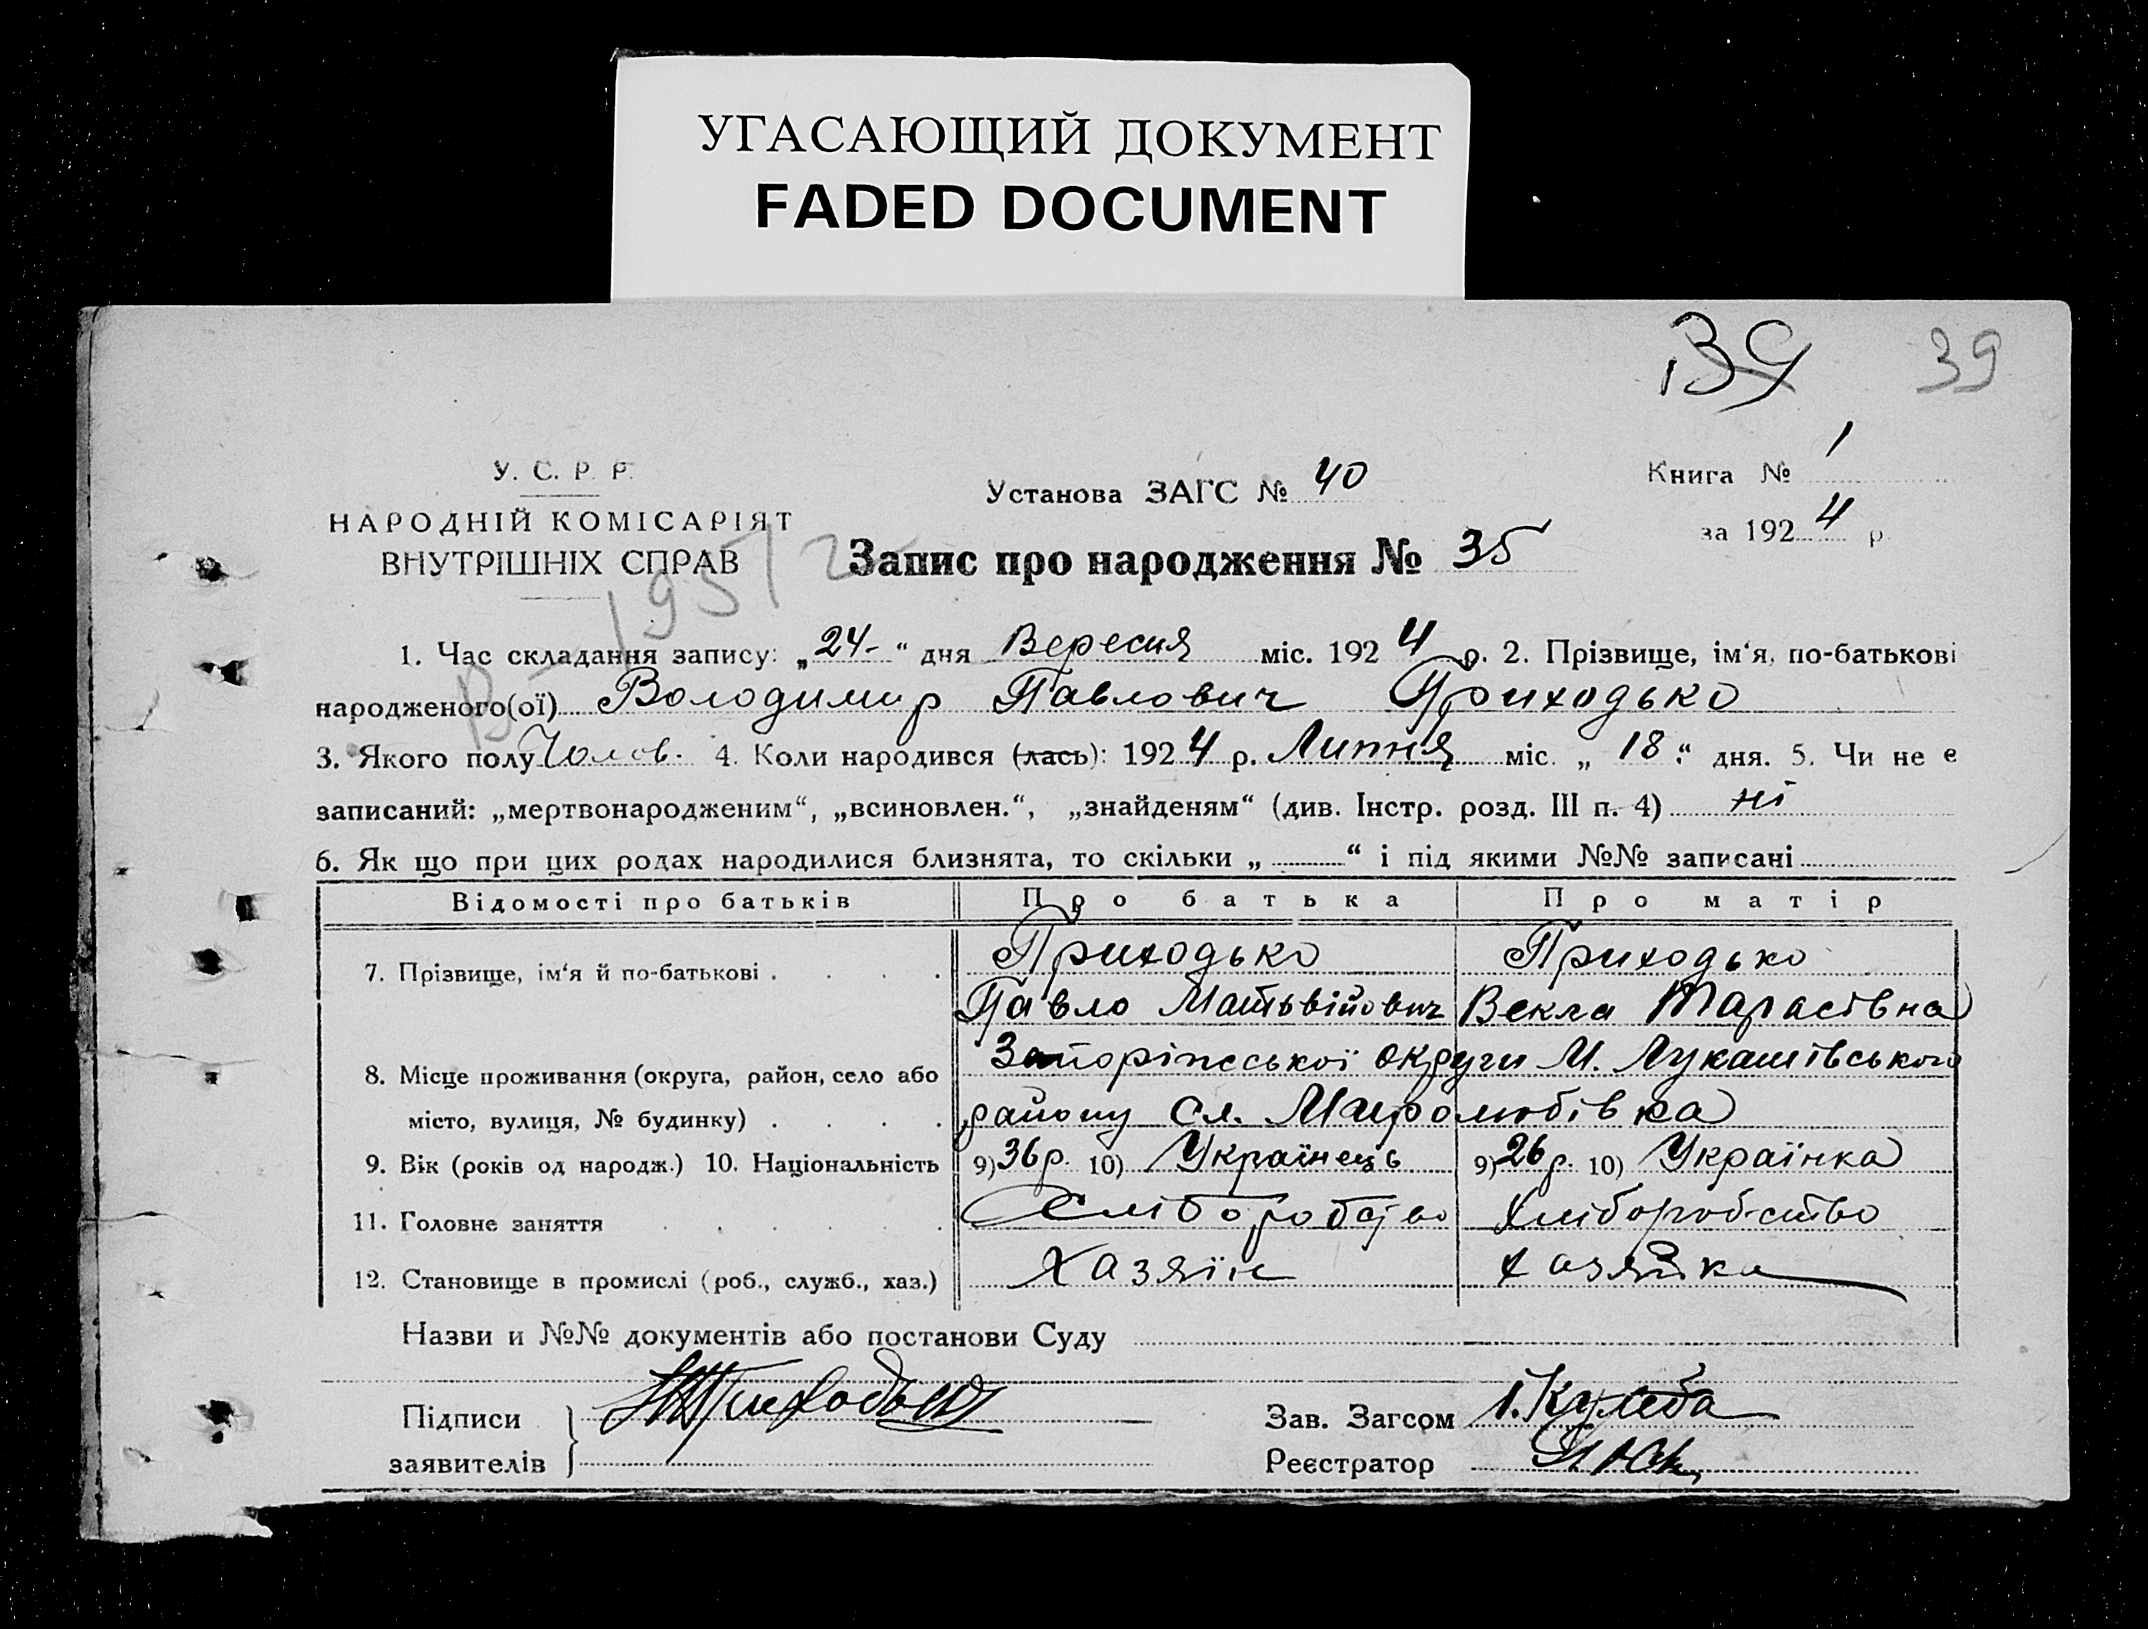 УГАСАЮЩИЙ ДОКУМЕНТ
FADED DOCUMENT
39 39
У. С. Р. Р.
НАРОДНІЙ КОМІСАРІЯТ
ВНУТРІШНІХ СПРАВ
Установа ЗАГС № 40
Книга № 1
за 1924 р.
Запис про народження № 35
1. Час складання запису: „24-“ дня Вересня міс. 1924 р. 2. Прізвище, ім‘я, по-батькові
народженого(ої) Володимир Павлович Приходько
3. Якого полу Чолов. 4. Коли народився (лась): 1924 р. Липня міс. „18“ дня. 5. Чи не є
записаний: „мертвонародженим“, „всиновлен.“, „знайденям“ (див. Інстр. розд. III п. 4) ні
6. Як що при цих родах народилися близнята, то скільки „ “ і під якими №№ записані
Відомості про батьків Про батька Про матір
7. Прізвище, ім‘я й по-батькові . . . . Приходько Приходько
Павло Матьвійович Векла Тарасівна
8. Місце проживання (округа, район, село або Запоріжської округи М. Лукашівського
місто, вулиця, № будинку) . . . . району сл. Миролюбівка
9. Вік (років од народж.) 10. Національність 9) 36 р. 10) Українець 9) 26 р. 10) Українка
11. Головне заняття . . . . . Хліборобство Хліборобство
12. Становище в промислі (роб., служб., хаз.) Хазяїн Хазяйка
Назви и №№ документів або постанови Суду
Підписи Приходько Зав. Загсом І. Кулеба
заявителів Реєстратор